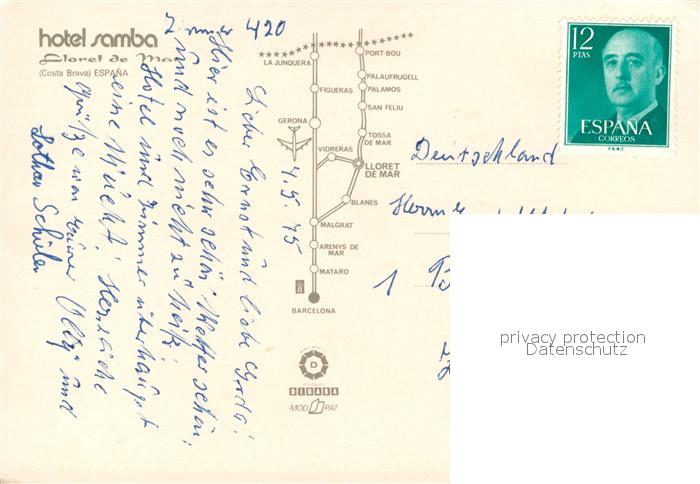 hotel samba
Lloret de Mar
(Costa Brava) ESPAÑA
Zimmer 420
4.5.75
Lieber Ernst und liebe Gerda!
Hier ist es sehr schön! Wetter schön,
und noch nicht zu heiß!
Hotel und Zimmer überhaupt
eine Wucht! Herzliche
Grüße von Eurer und
Lothar Schüler
LA JUNQUERA
PORT-BOU
FIGUERAS
PALAFRUGELL
PALAMOS
SAN FELIU
GERONA
TOSSA
DE MAR
VIDRERAS
LLORET
DE MAR
BLANES
MALGRAT
ARENYS DE
MAR
MATARO
BARCELONA
D
DIGASA
MOD PAT
12
PTAS
ESPAÑA
CORREOS
F.N.M.T.
Deutschland
Herrn
1
privacy protection
Datenschutz